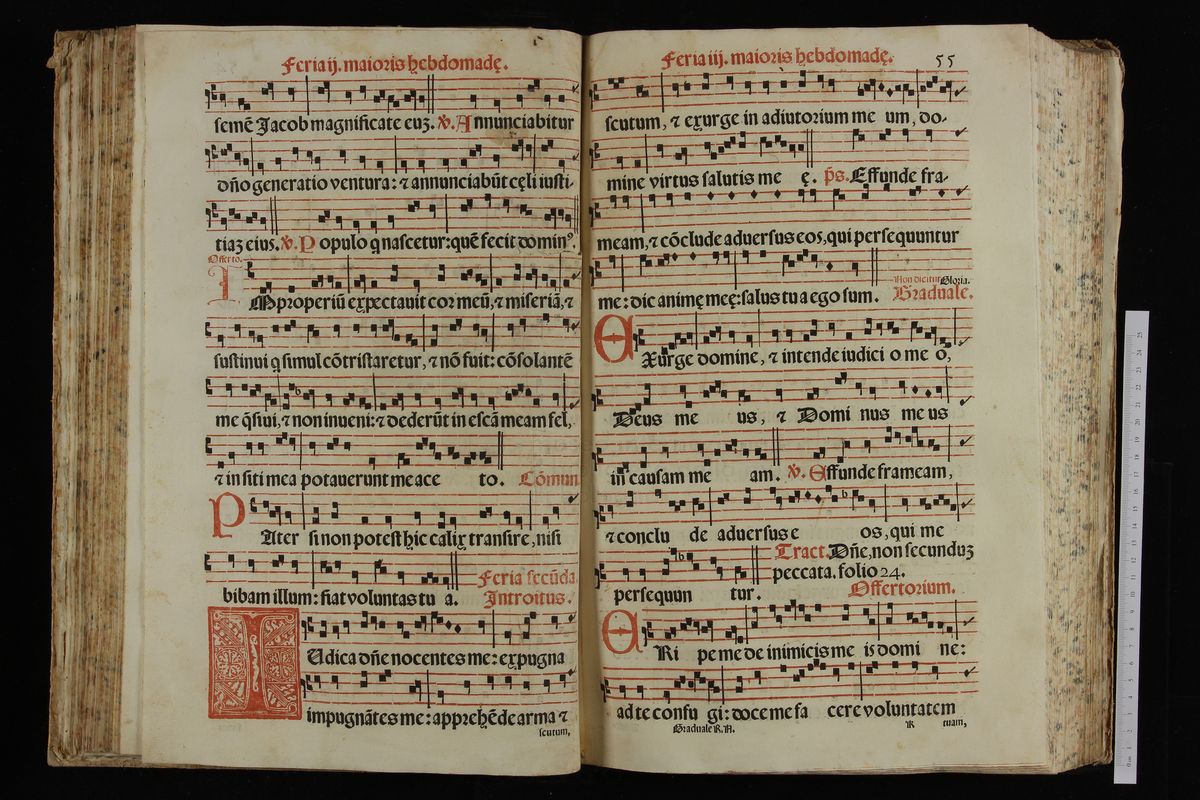 Feria ij. maioris hebdomadę.
semẽ Jacob magnificate euʒ. ℣. Annunciabitur
dño generatio ventura: ⁊ annunciabũt cęli iusti-
tiaʒ eius. ℣. Populo q̃ nascetur: quẽ fecit domin⁹.
Offerto.
IMproperiũ expectauit cor meũ, ⁊ miseriã, ⁊
sustinui q̃ simul cõtristaretur, ⁊ nõ fuit: cõsolantẽ
me q̃siui, ⁊ non inueni: ⁊ dederũt in escã meam fel,
⁊ in siti mea potauerunt me ace to. Cõmun
PAter si non potest hic calix transire, nisi
bibam illum: fiat voluntas tu a.
Feria secũda.
Introitus.
IUdica dñe nocentes me: expugna
impugnãtes me: apprehẽde arma ⁊
scutum,
Feria iij. maioris hebdomadę.
55
scutum, ⁊ exurge in adiutorium me um, do-
mine virtus salutis me ę. p̃s. Effunde fra-
meam, ⁊ cõclude aduersus eos, qui persequuntur
me: dic animę meę: salus tua ego sum.
Non dicitur Gloria.
Graduale.
EXurge domine, ⁊ intende iudici o me o,
Deus me us, ⁊ Domi nus me us
in causam me am. ℣. Effunde frameam,
⁊ conclu de aduersus e os, qui me
persequun tur.
Tract. Dñe, non secunduʒ
peccata. folio 24.
Offertorium.
ERi pe me de inimicis me is domi ne:
ad te confu gi: doce me fa cere voluntatem
Graduale R. A.
tuam,